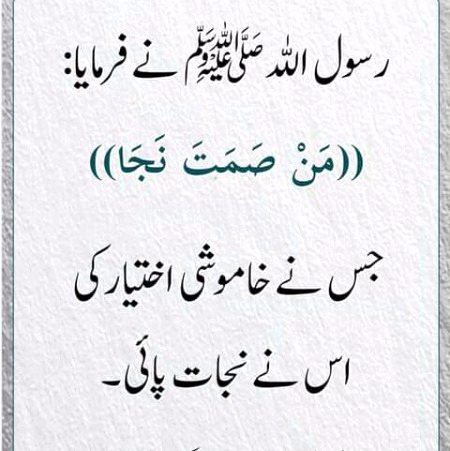 رسول اللہ ﷺ نے فرمایا:
((مَنْ صَمَتَ نَجَا))
جس نے خاموشی اختیار کی
اس نے نجات پائی۔